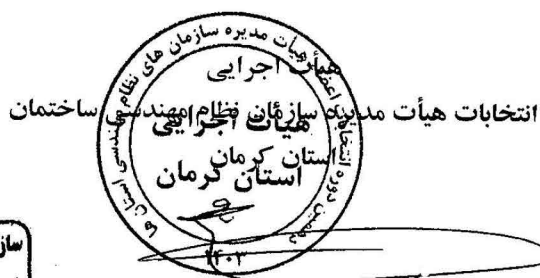 هیأت اجرایی
انتخابات هیأت مدیره سازمان نظام مهندسی ساختمان
استان کرمان
دهمین دوره انتخابات اعضای هیأت مدیره سازمان های نظام مهندسی استان ها
هیأت اجرایی
استان کرمان
۱۴۰۳
ساز